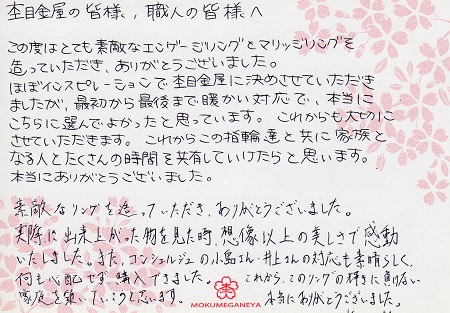 杢目金屋の皆様、職人の皆様へ
この度はとても素敵なエンゲージリングとマリッジリングを
造っていただき、ありがとうございました。
ほぼインスピレーションで杢目金屋に決めさせていただき
ましたが、最初から最後まで暖かい対応で、本当に
こちらに選んでよかったと思っています。これからも大切に
させていただきます。これからこの指輪達と共に家族と
なる人とたくさんの時間を共有していけたらと思います。
本当にありがとうございました。
素敵なリングを造っていただき、ありがとうございました。
実際に出来上がった物を見た時、想像以上の美しさで感動
いたしました。また、コンシェルジュの小島さん・井上さんの対応も素晴らしく、
何も心配せず購入できました。これから、このリングの輝きに負けない
家庭を築いていこうと思います。本当にありがとうございました。
MOKUMEGANEYA